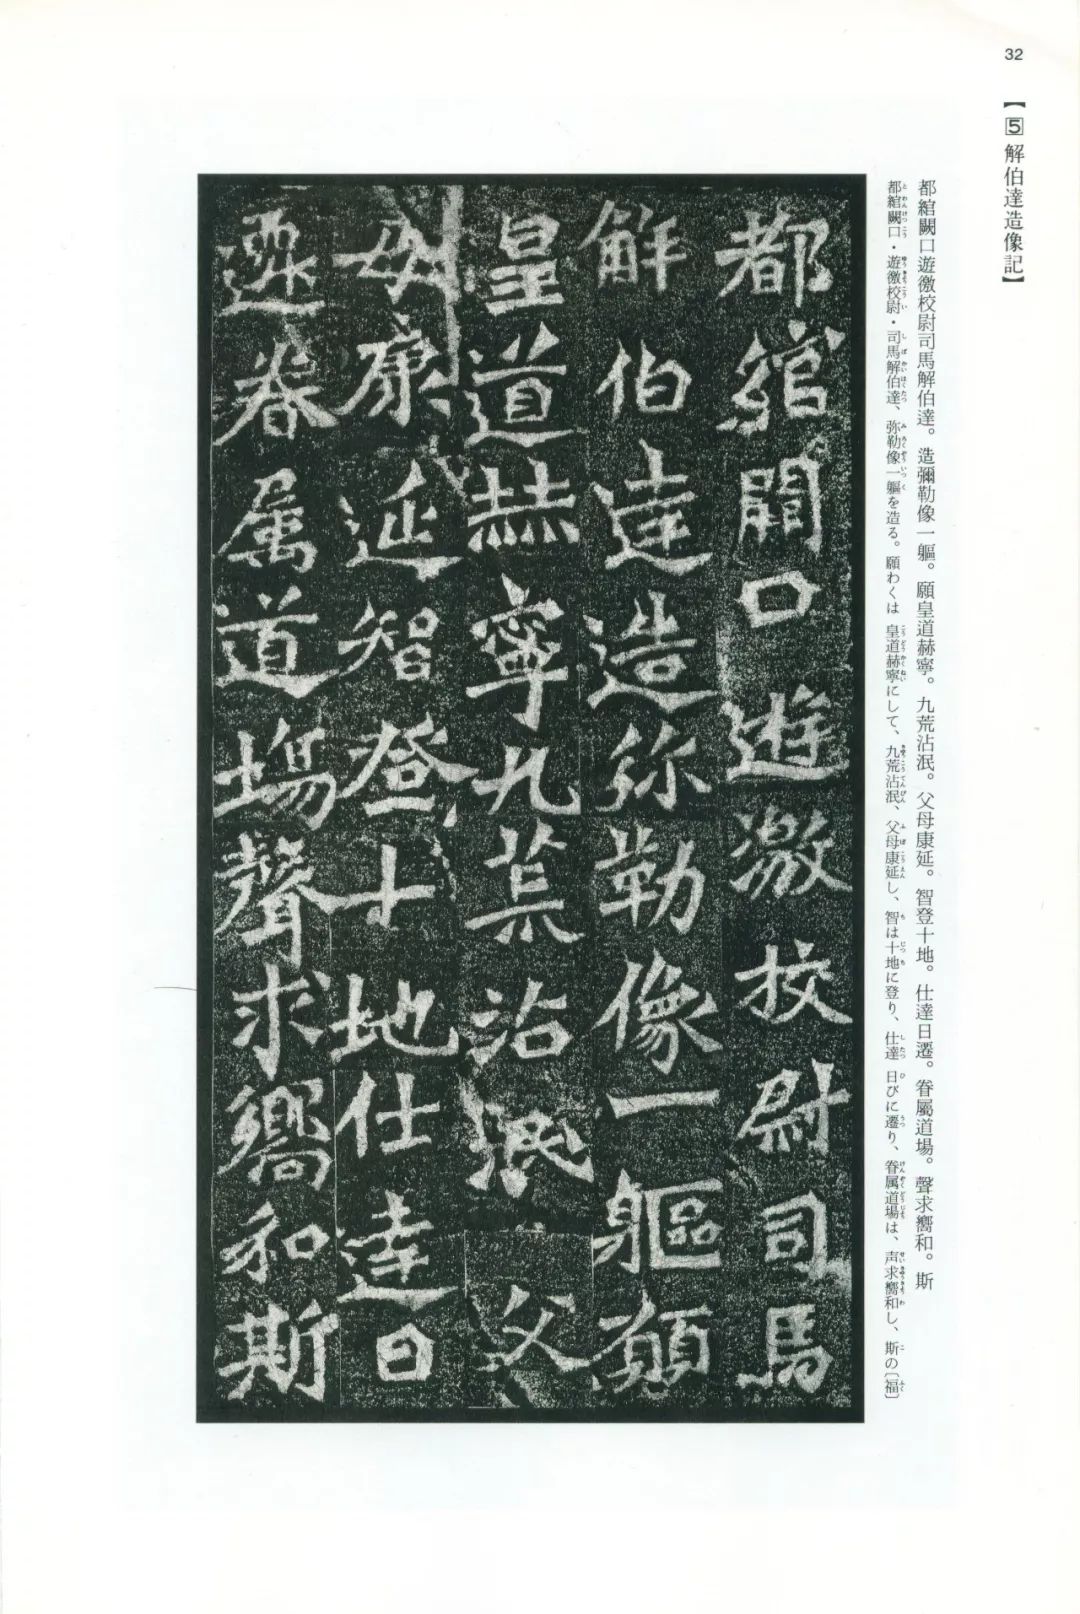 32
【5 解伯達造像記】
都綰闕口遊徼校尉司馬解伯達。造彌勒像一軀。願皇道赫寧。九荒沾泯。父母康延。智登十地。仕達日遷。眷屬道場。聲求嚮和。斯
都綰闕口・遊徼校尉・司馬解伯達、弥勒像一軀を造る。願わくは皇道赫寧にして、九荒沾泯、父母康延し、智は十地に登り、仕達日びに遷り、眷属道場は、声求嚮和し、斯の〔福〕
都綰闕口遊徼校尉司馬
解伯達造弥勒像一軀願
皇道赫寧九荒沾泯父
母康延智登十地仕達日
遷眷属道場聲求嚮和斯